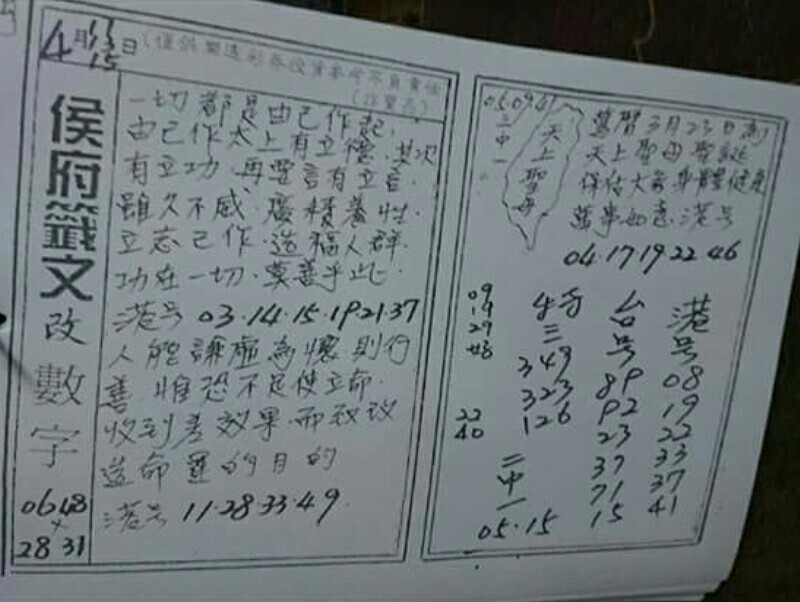 4月13 15日
侯府籤文改數字
06 48
28 31
一切都是由己作起，
由己作太上有立德．其次
有立功．再要言有立言．
雖久不感．廣積養性．
立志己作．造福人群．
功在一切．要善乎此．
港号 03·14·15·19·21·37
人能謙虛為懷則行
善．惟恐不足使立命．
收到善效果．而致改
造命運的目的
港号 11·28·33·49
05.09.41
三中一
天上聖母
天上聖母聖誕
保佑大家身體健康
萬事如意．港号
04·17·19·22·46
09
19
29
22
40
三
349
323
126
二中一
05·15
台号
89
92
23
37
71
15
港号
08
19
22
33
37
41